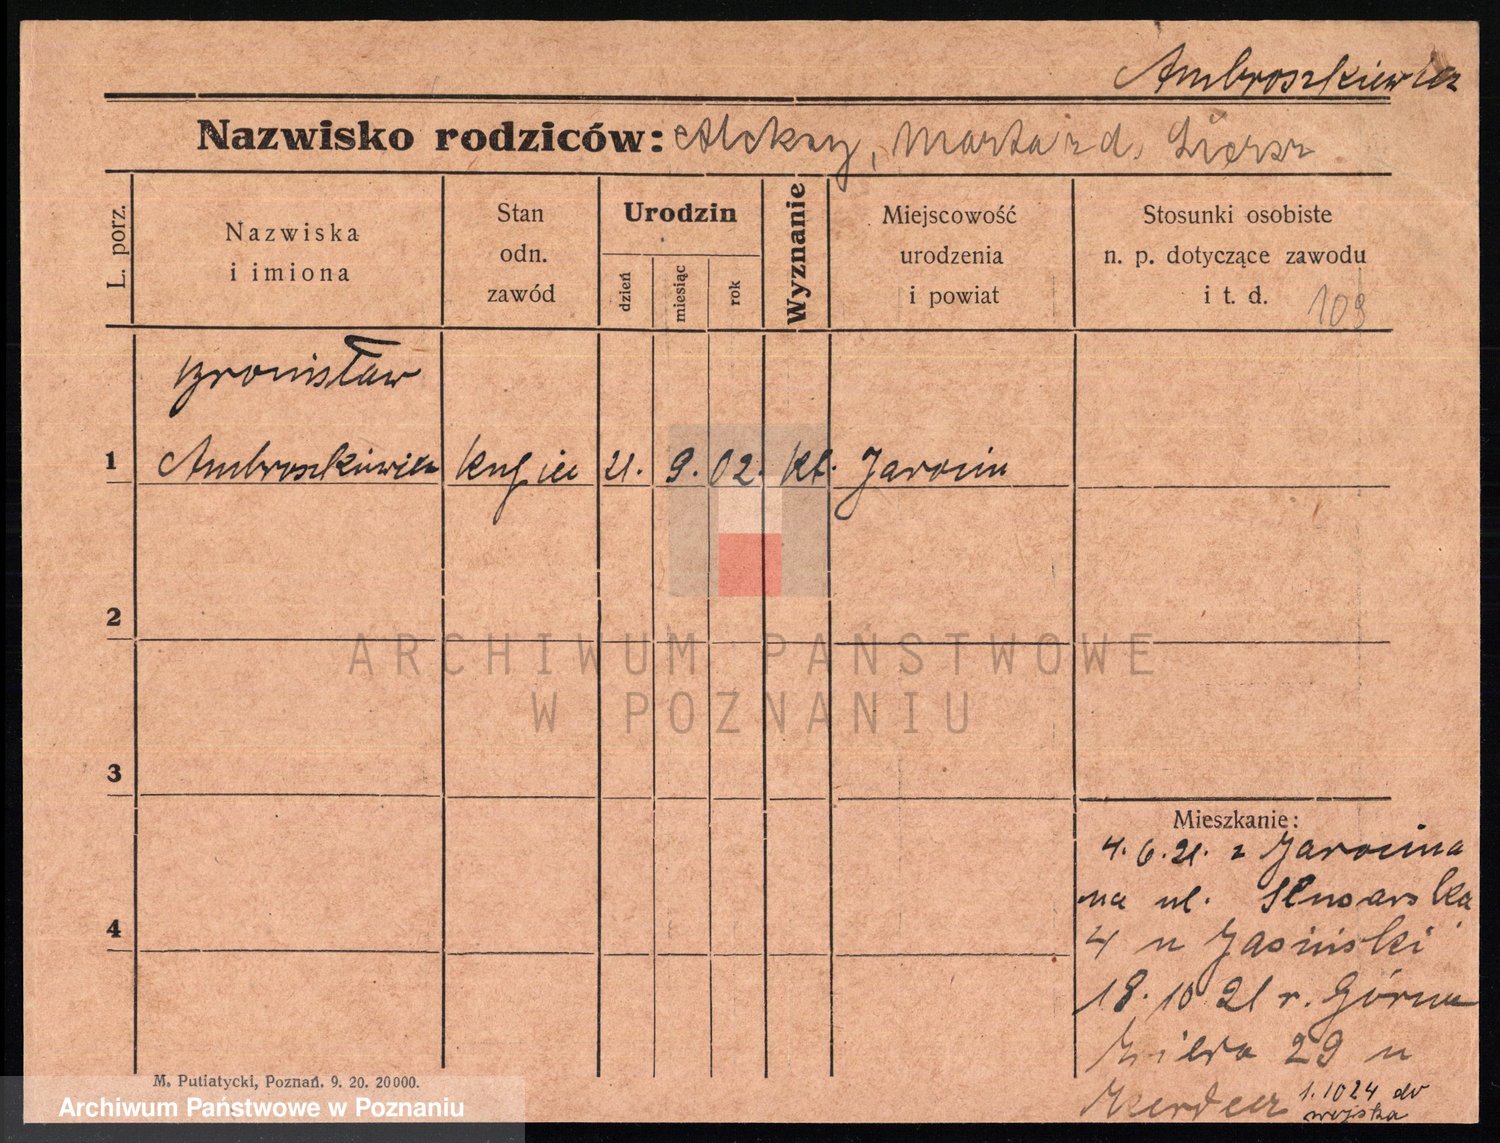 Ambroszkiewicz
Nazwisko rodziców: Aleksy, Marta z d.
L. porz.
Nazwiska
i imiona
Stan
odn.
zawód
Urodzin
dzień
miesiąc
rok
Wyznanie
Miejscowość
urodzenia
i powiat
Stosunki osobiste
n. p. dotyczące zawodu
i t. d. 109
Bronisław
1 Ambroszkiewicz kupiec 21. 9. 02. kt. Jarocin
2
ARCHIWUM PAŃSTWOWE
W POZNANIU
3
4
Mieszkanie:
4. 6. 21. z Jarocina
na ul. Ślusarska
4 u Jasiński
18. 10 21 r. Górna
Wilda 29 u
1. 10 24 do
wojska
M. Putiatycki, Poznań. 9. 20. 20000.
Archiwum Państwowe w Poznaniu